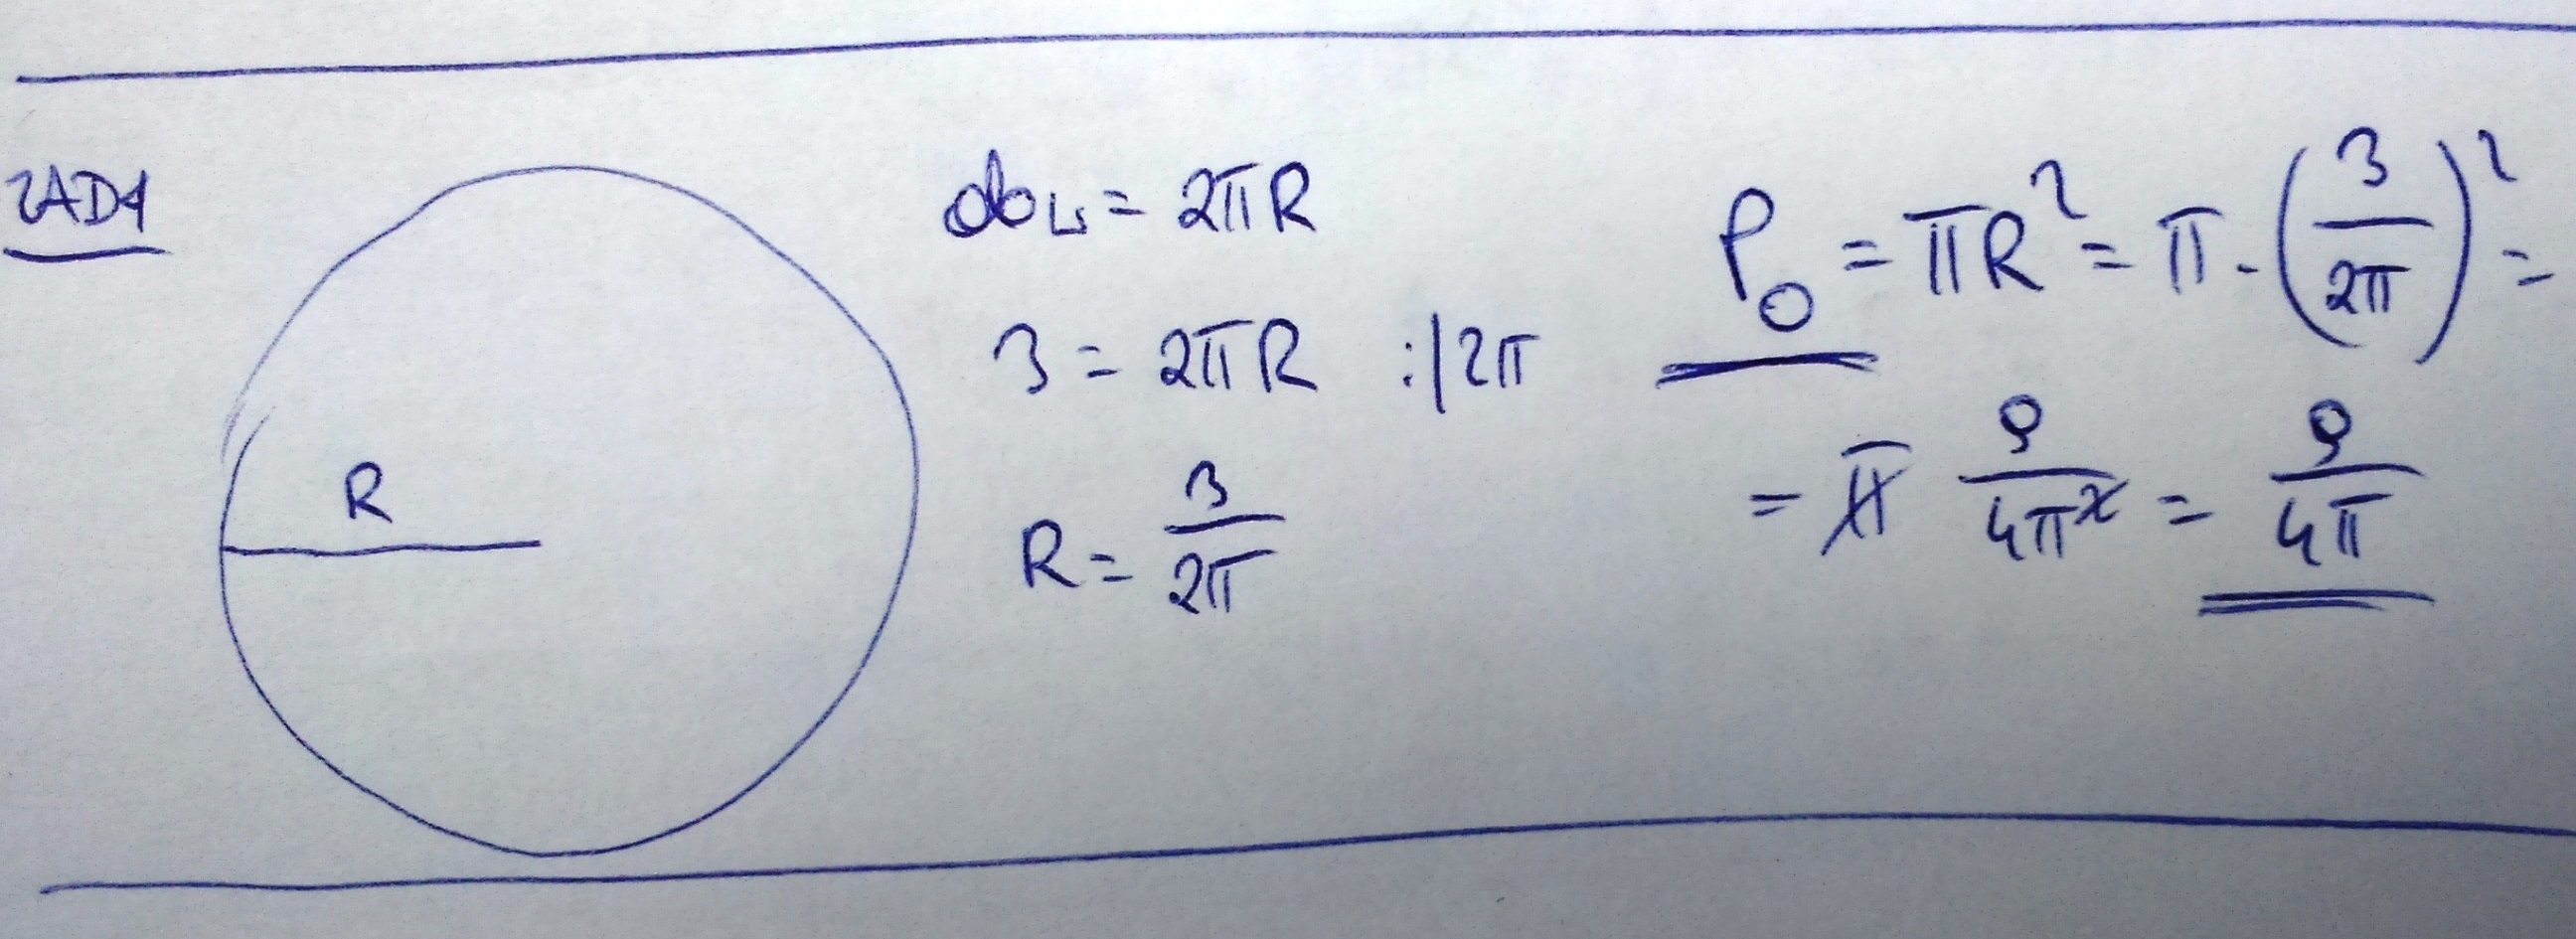 ZAD1
R
obw = 2πR
3 = 2πR :/2π
R = 3/2π
P₀ = πR² = π · (3/2π)² =
= π 9/4π² = 9/4π